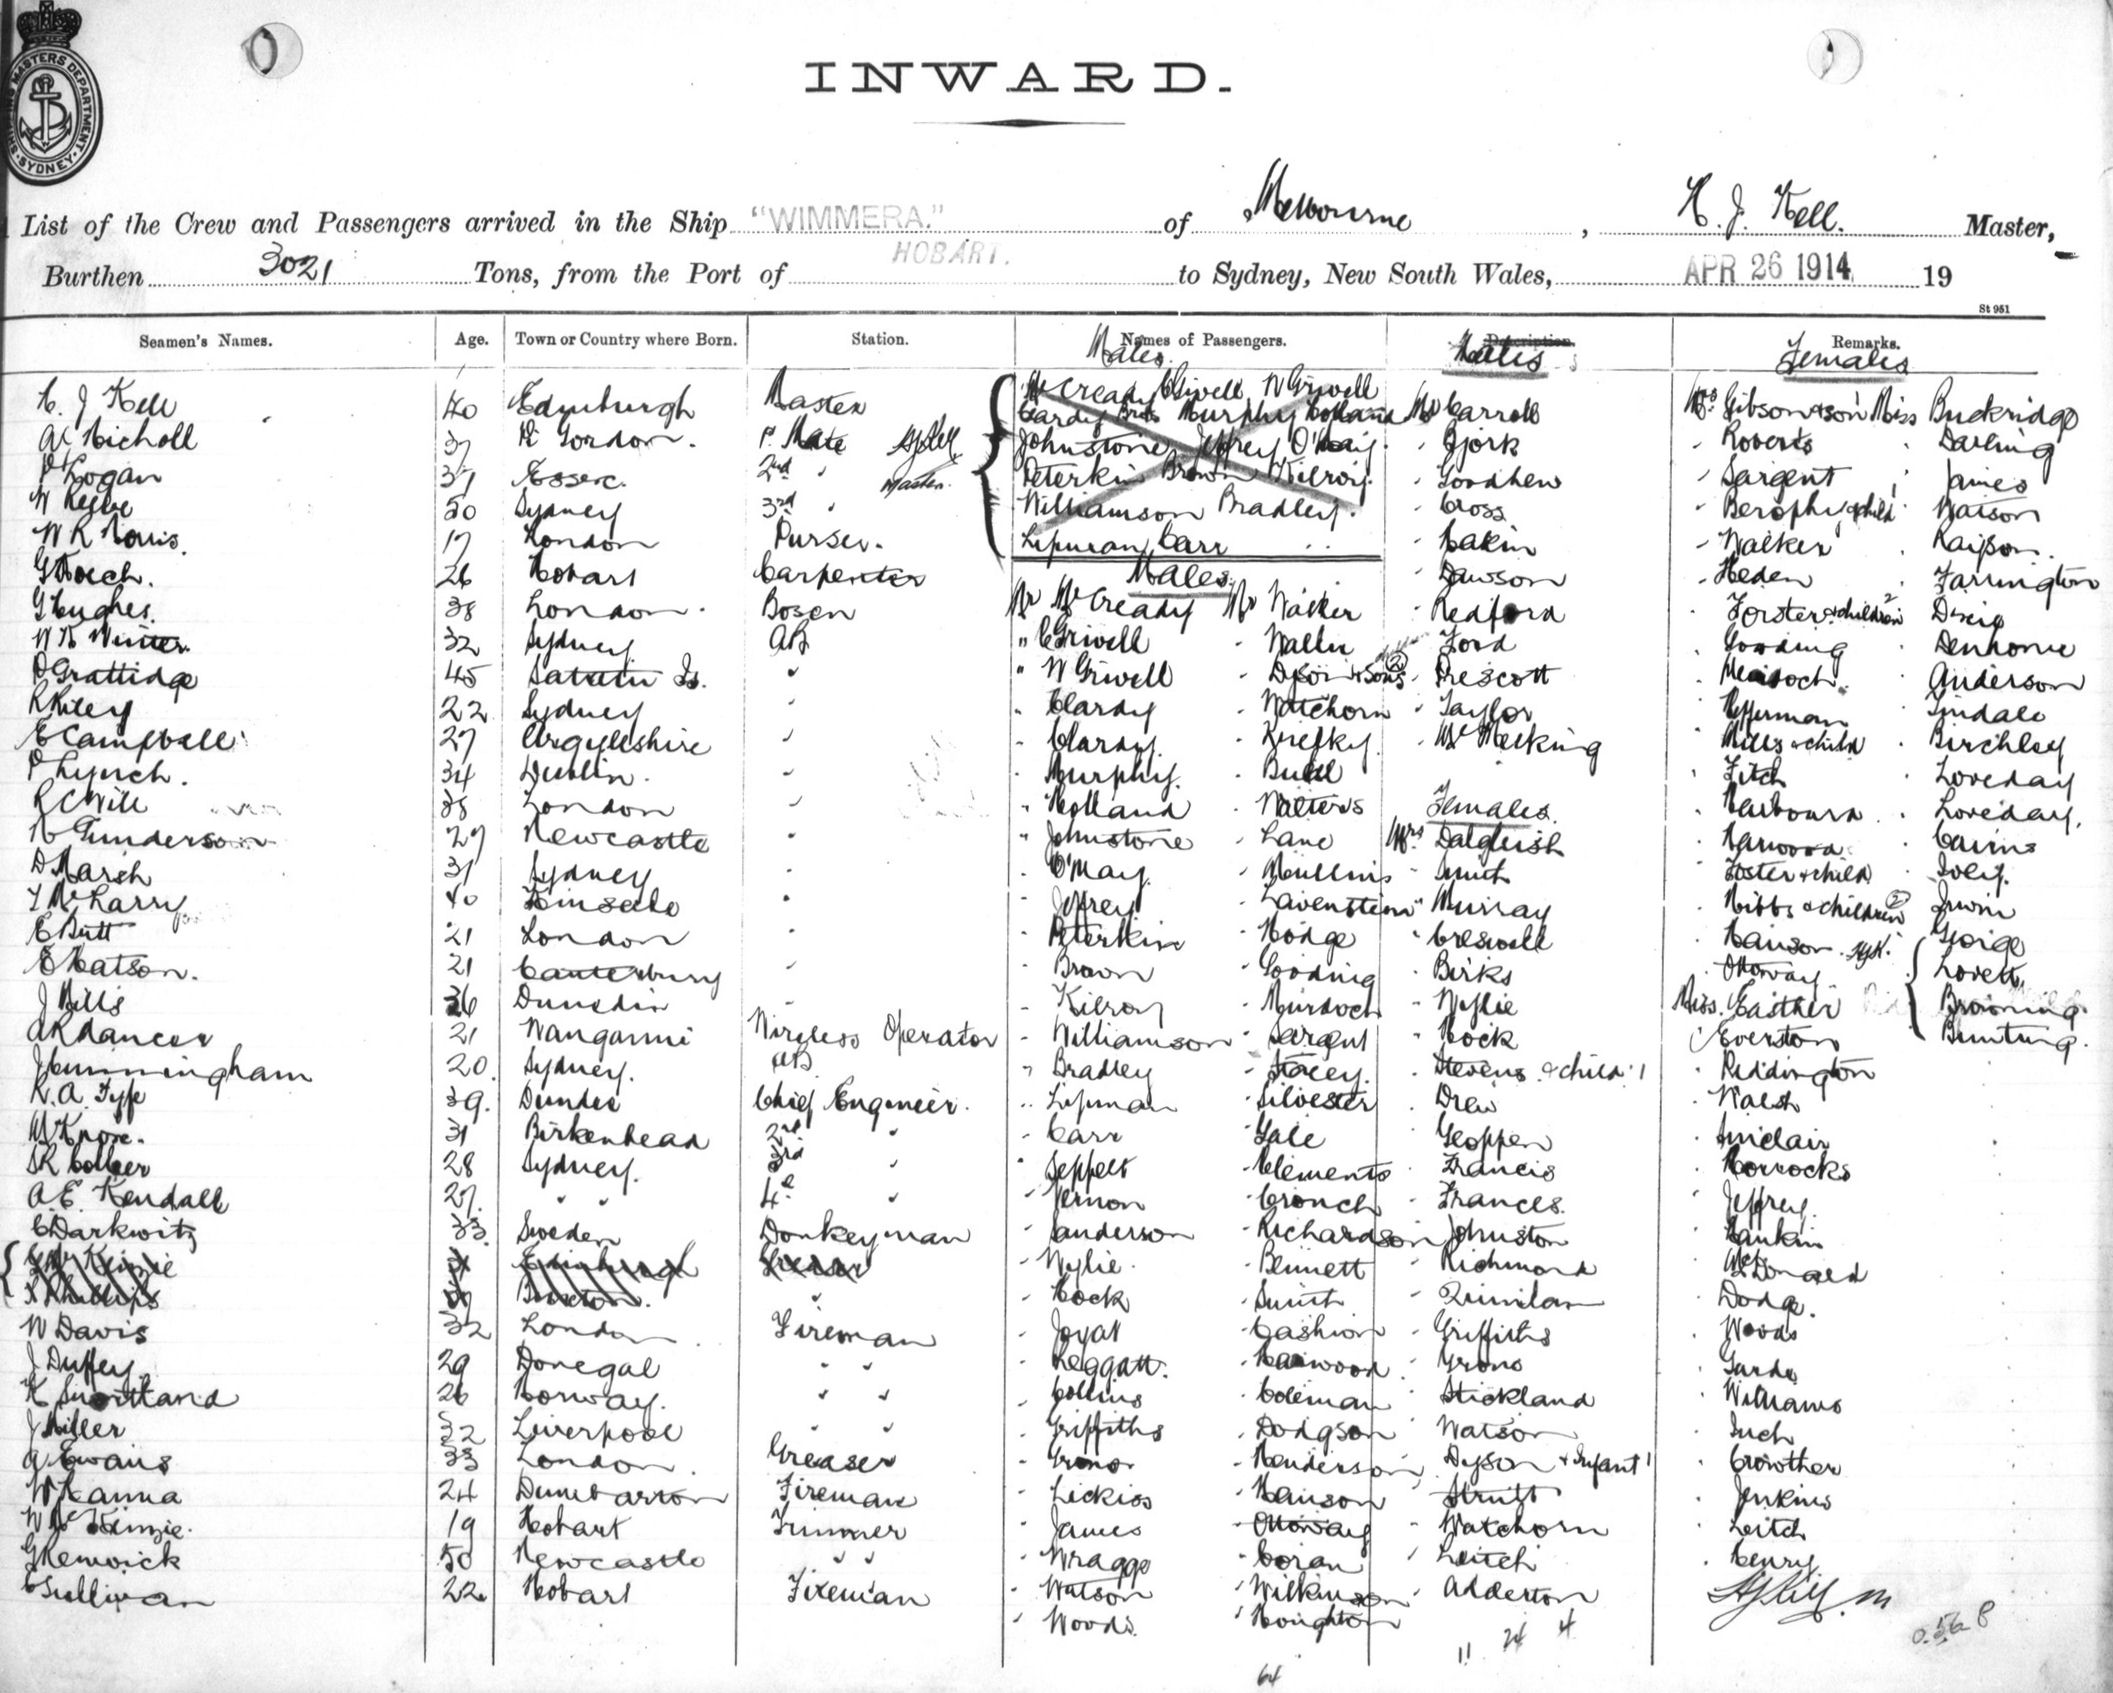 SHIPPING MASTERS DEPARTMENT · SYDNEY ·
INWARD.
List of the Crew and Passengers arrived in the Ship "WIMMERA." of Melbourne, H. J. Kell. Master,
Burthen 3021 Tons, from the Port of HOBART. to Sydney, New South Wales, APR 26 1914 19
St 951
Seamen's Names. Age. Town or Country where Born. Station. Names of Passengers. Description. Remarks.
Males. Males Females
H. J Kell 40 Edinburgh Master
A Nicholl 37 Pt Gordon. 1st Mate
P Logan 37 Essex. 2nd "
W Reeve 50 Sydney 3rd "
W R Norris. 17 London Purser.
G Roach. 26 Hobart Carpenter
G Hughes. 38 London. Bosen
W H Winter. 32 Sydney. AB
P Grattidge 45 Is. "
R Riley 22 Sydney "
E Campbell 27 Argyleshire "
P Lynch. 34 Dublin. "
R C Will 38 London "
N Gunderson 29 Newcastle "
D Marsh 31 Sydney "
T McLarry 40 Kinsale "
E Butt 21 London "
E Hatson. 21 Canterbury "
J Mills 36 Dunedin "
A R Dancer 21 Wanganui Wireless Operator
J Cunningham 20. Sydney. AB.
K. A. Fyfe 39. Dundee Chief Engineer.
W Knox. 31 Birkenhead 2nd "
S R Collier 28 Sydney. 3rd "
A. E. Kendall 27. " " 4th "
C Darkwitz 33. Sweden Donkeyman
W Davis 32 London Fireman
J Duffey. 29 Donegal " "
K Snortland 26 Norway. " "
J Miller 32 Liverpool " "
A. Ewans 33 London. Greaser
W Hanna 24 Dumbarton Fireman
W McKinzie. 19 Hobart Trimmer
G Renwick 50 Newcastle " "
C Sullivan 22. Hobart Fireman
McCready C Grivell W Grivell
Clardy Bros Murphy Holland
Johnstone Jeffrey O'May.
Peterkin Brown Kilroy.
Williamson Bradley.
Lipman Carr
Males.
Mr McCready Mr Walker
" C Grivell " Waller
" W Grivell " Dyson & Sons 2
" Clardy " Watchorn
" Clardy. " Kirefky.
" Murphy. " Bull
" Holland " Walters
" Johnstone " Lane
" O'May. " Mullins
" Jeffrey " Lavenstein
" Peterkin " Hodge
" Brown " Gooding
" Kilroy " Murdoch
" Williamson " Sargent
" Bradley " Stacey.
" Lipman " Silvester
" Carr " Gale
" Seppelt " Clements
" Vernon " Crouch
" Sanderson " Richardson
" Wylie. " Bennett
" Cock " Smith
" Joyat " Cashion
" Leggatt. " Harwood
" Collins " Coleman
" Griffiths " Dodgson
" Grono " Henderson
" Lickiss " Hanson
" James " Ottoway
" Wragge " Coran
" Watson " Wilkinson
" Woods. " Houghton
64
Mr Carroll
" Bjork
" Goodhew
" Cross
" Eakin
" Dawson
" Redford
" Ford
" Prescott
" Taylor
" McMeeking
Females.
Mrs Dalgleish
" Smith
" Murray
" Creswell
" Birks
" Wylie
" Cock
" Stevens & child 1
" Drew
" Geoppen
" Francis
" Frances.
" Johnston
" Richmond
" Quinlan
" Griffiths
" Grono
" Stickland
" Watson
" Dyson & Infant 1
" Strutt
" Watchorn
" Leitch
" Alderton
11 24 4
Mrs Gibson & son 1 Miss Buckridge
" Roberts " Darling
" Sargent " James
" Berophy & child 1 " Watson
" Walker " Raison.
" Heden " Farrington
" Forster & children 2
" Gooding " Denholme
" Murdoch. " Anderson
" Heffernan " Tindale
" Mills & child " Birchley
" Fitch " Loveday
" Harbourd " Loveday.
" Harwood " Cairns
" Foster & child " Joley.
" Nibbs & children 2 " Irwin
" Hanson George
" Ottoway Lovett
Miss. Easther Browning.
" Everston Bunting.
" Reddington
" Walsh
" Sinclair
" Horrocks
" Jeffrey.
" Rankin
" McDonald
" Dodge.
" Woods
" Garde
" Williams
" Such
" Crowther
" Jenkins
" Leitch
" Henry.